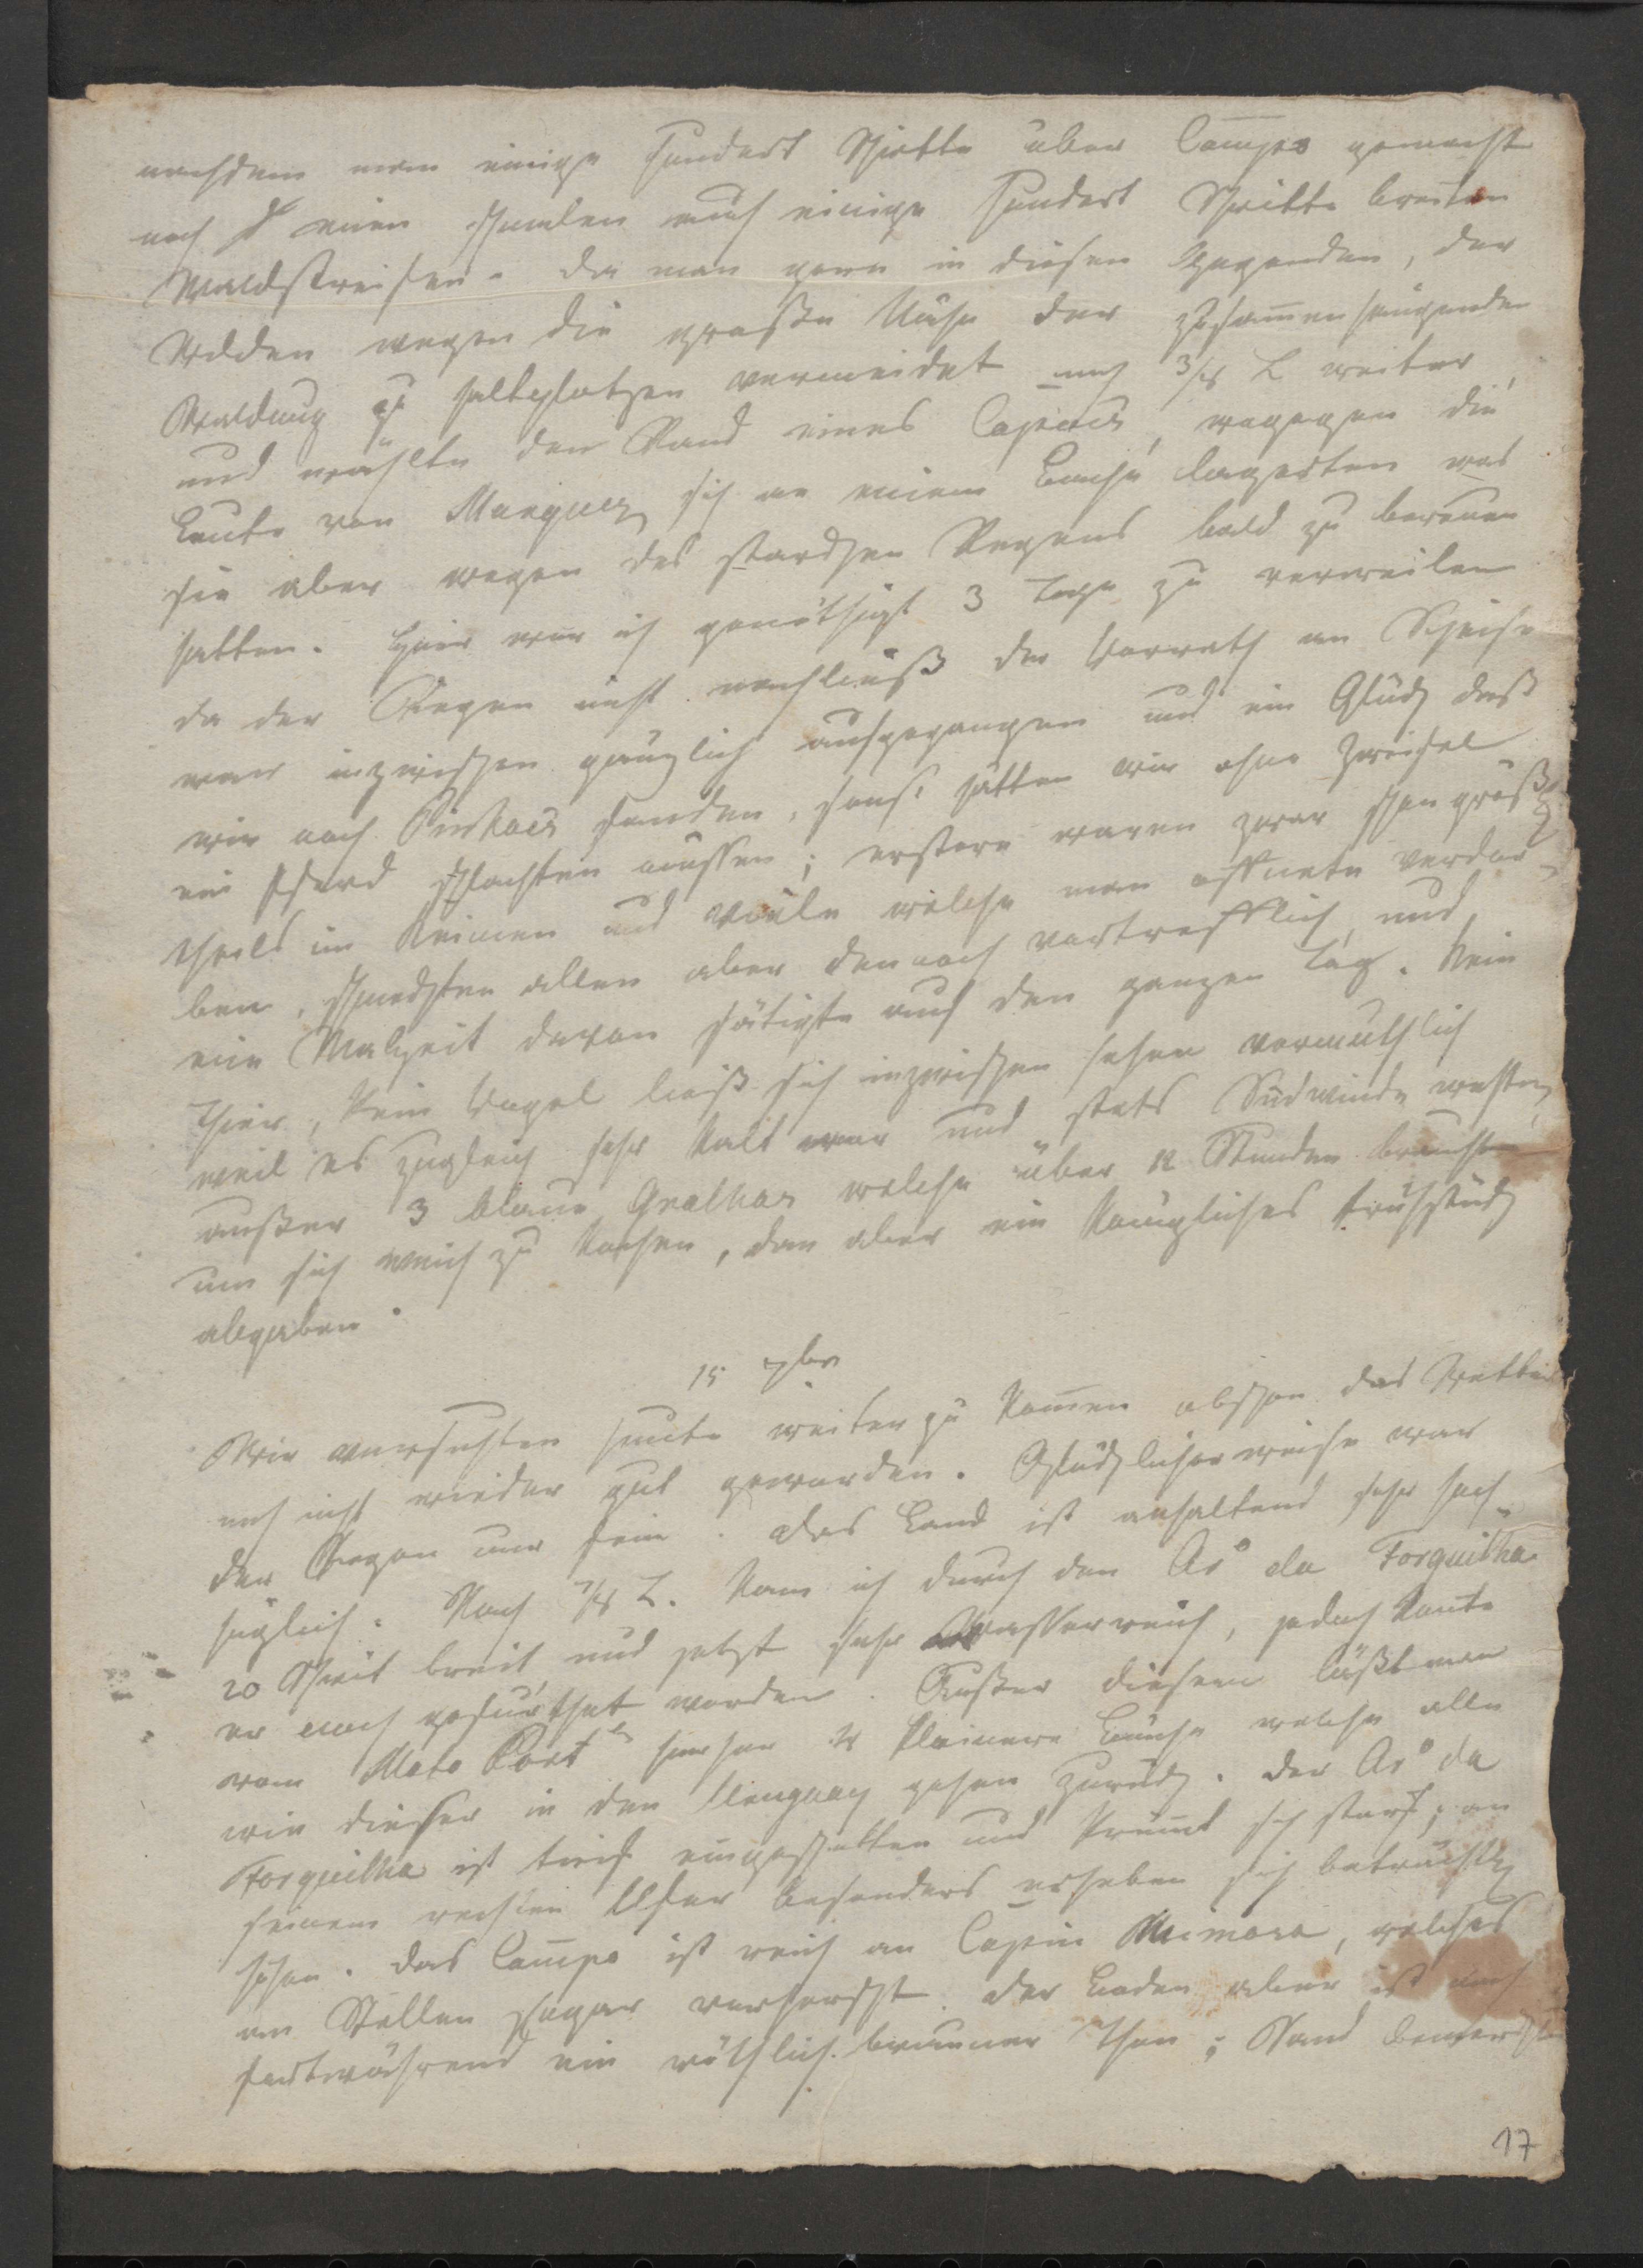 nachdem man einige hundert Schritte über Campo gemacht
noch einen schmalen auch einige hundert Schritte breiten
Waldstreifen. Da man gern in diesen Gegenden, der
Wilden wegen die große Nähe der zusammenhängenden
Waldung zu Halteplatzen vermeidet noch 3/4 L weiter
und wählte den Rand eines Capões, wogegen die
Leute von Marques sich an einem Bache lagerten was
sie aber wegen des starcken Regens bald zu bereuen
hatten. Hier war ich genöthigt 3 Tage zu verweilen
da der Regen nicht nachließ der Vorrath an Speise
war inzwischen gänzlich aufgegangen und ein Glück daß
wir noch Pinhoes fanden, sonst hätten wir ohne Zweifel
ein Pferd schlachten müssen; erstere waren zwar schon größten
theils im Keimen und viele welche man öffnete verdor-
ben, schmeckten allen aber dennoch vortrefflich und
eine Malzeit davon sätigte auch den ganzen Tag. Kein
Thier, kein Vogel ließ sich inzwischen sehen vermuthlich
weil es zugleich sehr kalt war und stets Südwinde wehten
außer 3 blaue Gralhas welche über 12 Stunden brauchten
um sich weich zu kochen, dan aber ein königliches Frühstück
abgaben.
15 7br
Wir versuchten heute weiter zu kommen obschon das Wetter
noch nicht wieder gut geworden. Glücklicherweise war
der Regen nur fein. Das Land ist anhaltend sehr hoch
hüglich. Nach 7/8 L. kam ich durch den Ao da Forquilha
20 Schrit breit und jetzt sehr Wasserreich, jedoch konte
er noch gefurthet werden. Außer diesem läßt man
vom Mato Port. hierher 4 kleinere Bäche welche alle
wie dieser in den Uruguay gehen zurück. Der Ao da
Forquilha ist tief eingeschnitten und krümt sich stark; an
seinem rechten Ufer besonders erheben sich beträchtliche
Höhen. Das Campo ist reich an Capim Mimoso, welches
an Stellen sogar vorherscht. Der Boden aber ist auch
fortwährend ein röthlich brauner Thon; Sand bemerckte
17